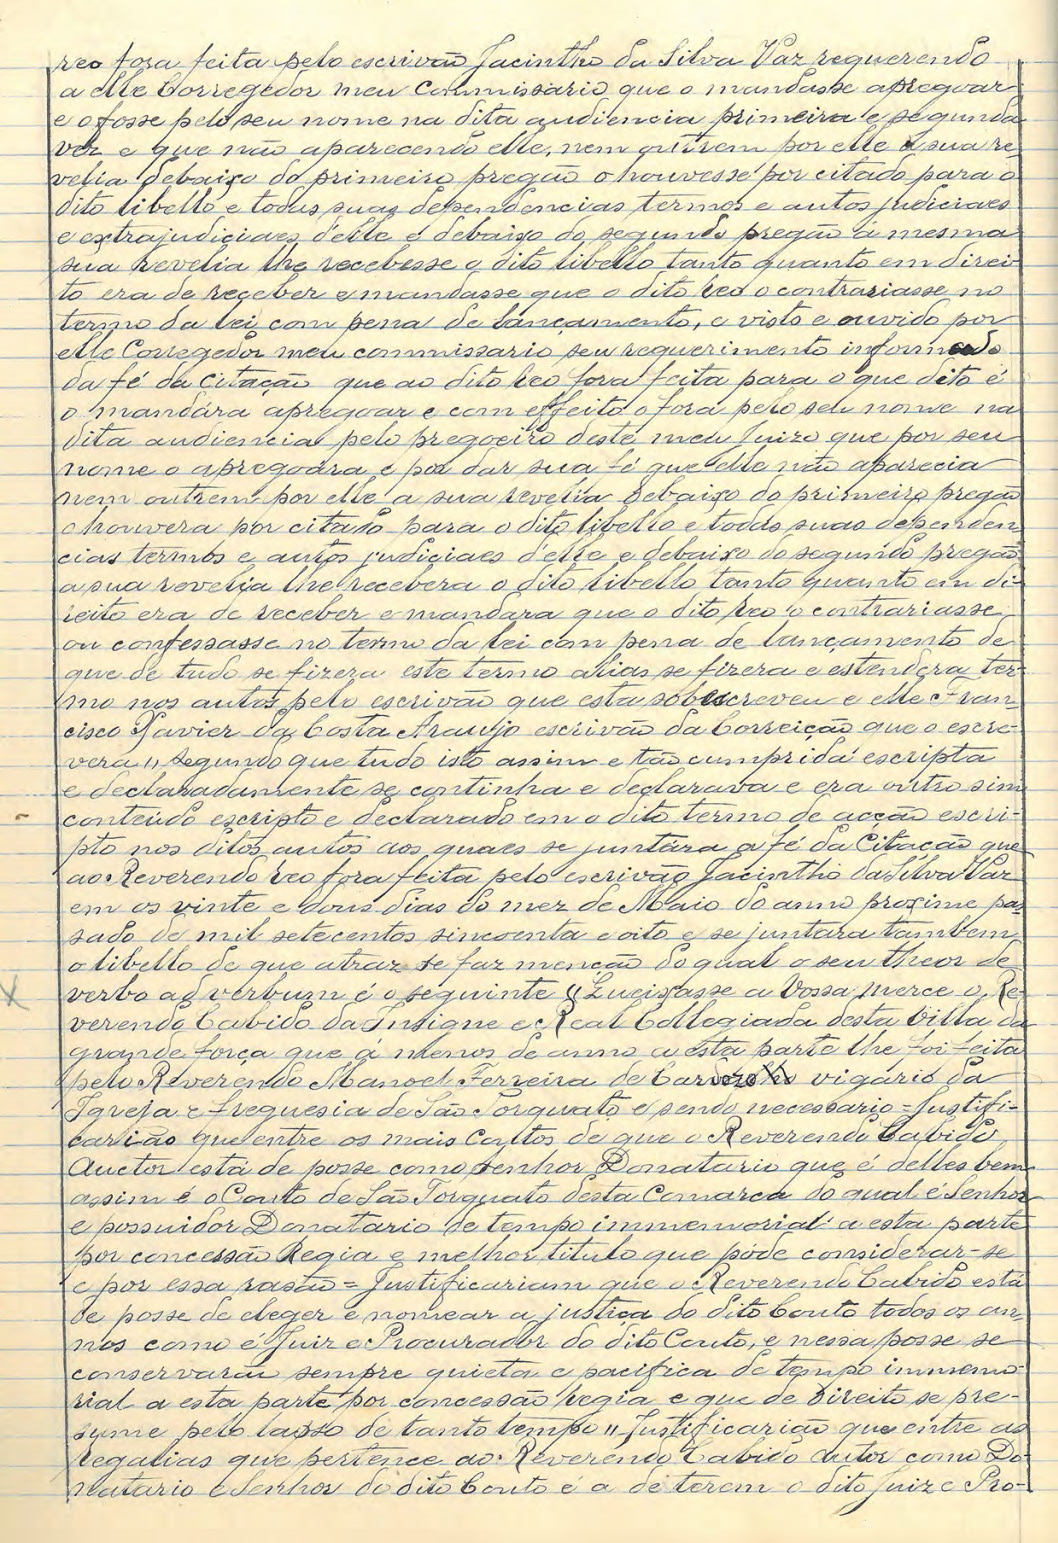 reo fora feita pelo escrivão Jacintho da Silva Vaz requerendo
a elle Corregedor meu commissario que o mandasse apregoar
e o fosse pelo seu nome na dita audiencia primeira e segunda
vez e que não aparecendo elle, nem outrem por elle á sua re-
velia debaixo do primeiro pregão o houvesse por citado para o
dito libello e todas suas dependencias termos e autos judiciaes
e extrajudiciaes d'elle e debaixo do segundo pregão a mesma
sua revelia lhe recebesse o dito libello tanto quanto em direi-
to era de receber e mandasse que o dito reo o contrariasse no
termo da lei com pena de lançamento, e visto e ouvido por
elle Corregedor meu commissario seu requerimento informado
da fé da citação que ao dito reo fora feita para o que dito é
o mandára apregoar e com effeito o fora pelo seu nome na
dita audiencia pelo pregoeiro deste meu Juizo que por seu
nome o apregoára e por dar sua fé que elle não aparecia
nem outrem por elle a sua revelia debaixo do primeiro pregão
o houvera por citado para o dito libello e todas suas dependen-
cias termos e autos judiciaes d'elle e debaixo do segundo pregão
a sua revelia lhe recebera o dito libello tanto quanto em di-
reito era de receber e mandara que o dito reo o contrariasse
ou confessasse no termo da lei com pena de lançamento de
que de tudo se fizera este termo alias se fizera e estendera ter-
mo nos autos pelo escrivão que esta sobescreveu e elle Fran-
cisco Xavier da Costa Araujo escrivão da Correição que o escre-
vera „ segundo que tudo isto assim e tão cumprida escripta
e declaradamente se continha e declarava e era outro sim
conteúdo escripto e declarado em o dito termo de acção escri-
pto nos ditos autos aos quaes se juntára a fé da Citação que
ao Reverendo reo fora feita pelo escrivão Jacintho da Silva Vaz
em os vinte e dous dias do mez de Maio do anno proximo pas-
sado de mil setecentos sincoenta e oito e se juntara tambem
o libello de que atraz se faz menção do qual o seu theor de
verbo ad verbum é o seguinte „ Queixasse a Vossa merce o Re-
verendo Cabido da Insigne e Real Collegiada desta Villa da
grande força que á menos de anno a esta parte lhe foi feita
pelo Reverendo Manoel Ferreira de Cardozo vigário da
Igreja e freguesia de São Torquato e sendo necessario = Justifi-
carião que entre os mais Coutos de que o Reverendo Cabido
Auctor está de posse como senhor Donatario que é delles bem
assim é o Couto de São Torquato desta Comarca do qual é Senhor
e possuidor Donatario de tempo immemorial a esta parte
por concessão Regia e melhor titulo que póde considerar-se
e por essa rasão = Justificariam que o Reverendo Cabido está
de posse de eleger e nomear a justiça do dito Couto todos os an-
nos como é Juiz e Procurador do dito Couto, e nessa posse se
conservarão sempre quieta e pacifica de tempo immemo-
rial a esta parte por concessão regia e que de Direito se pre-
sume pelo lapso de tanto tempo „ Justificarião que entre as
regalias que pertence ao Reverendo Cabido Autor como Do-
natario e Senhor do dito Couto é a de terem o dito Juiz e Pro-